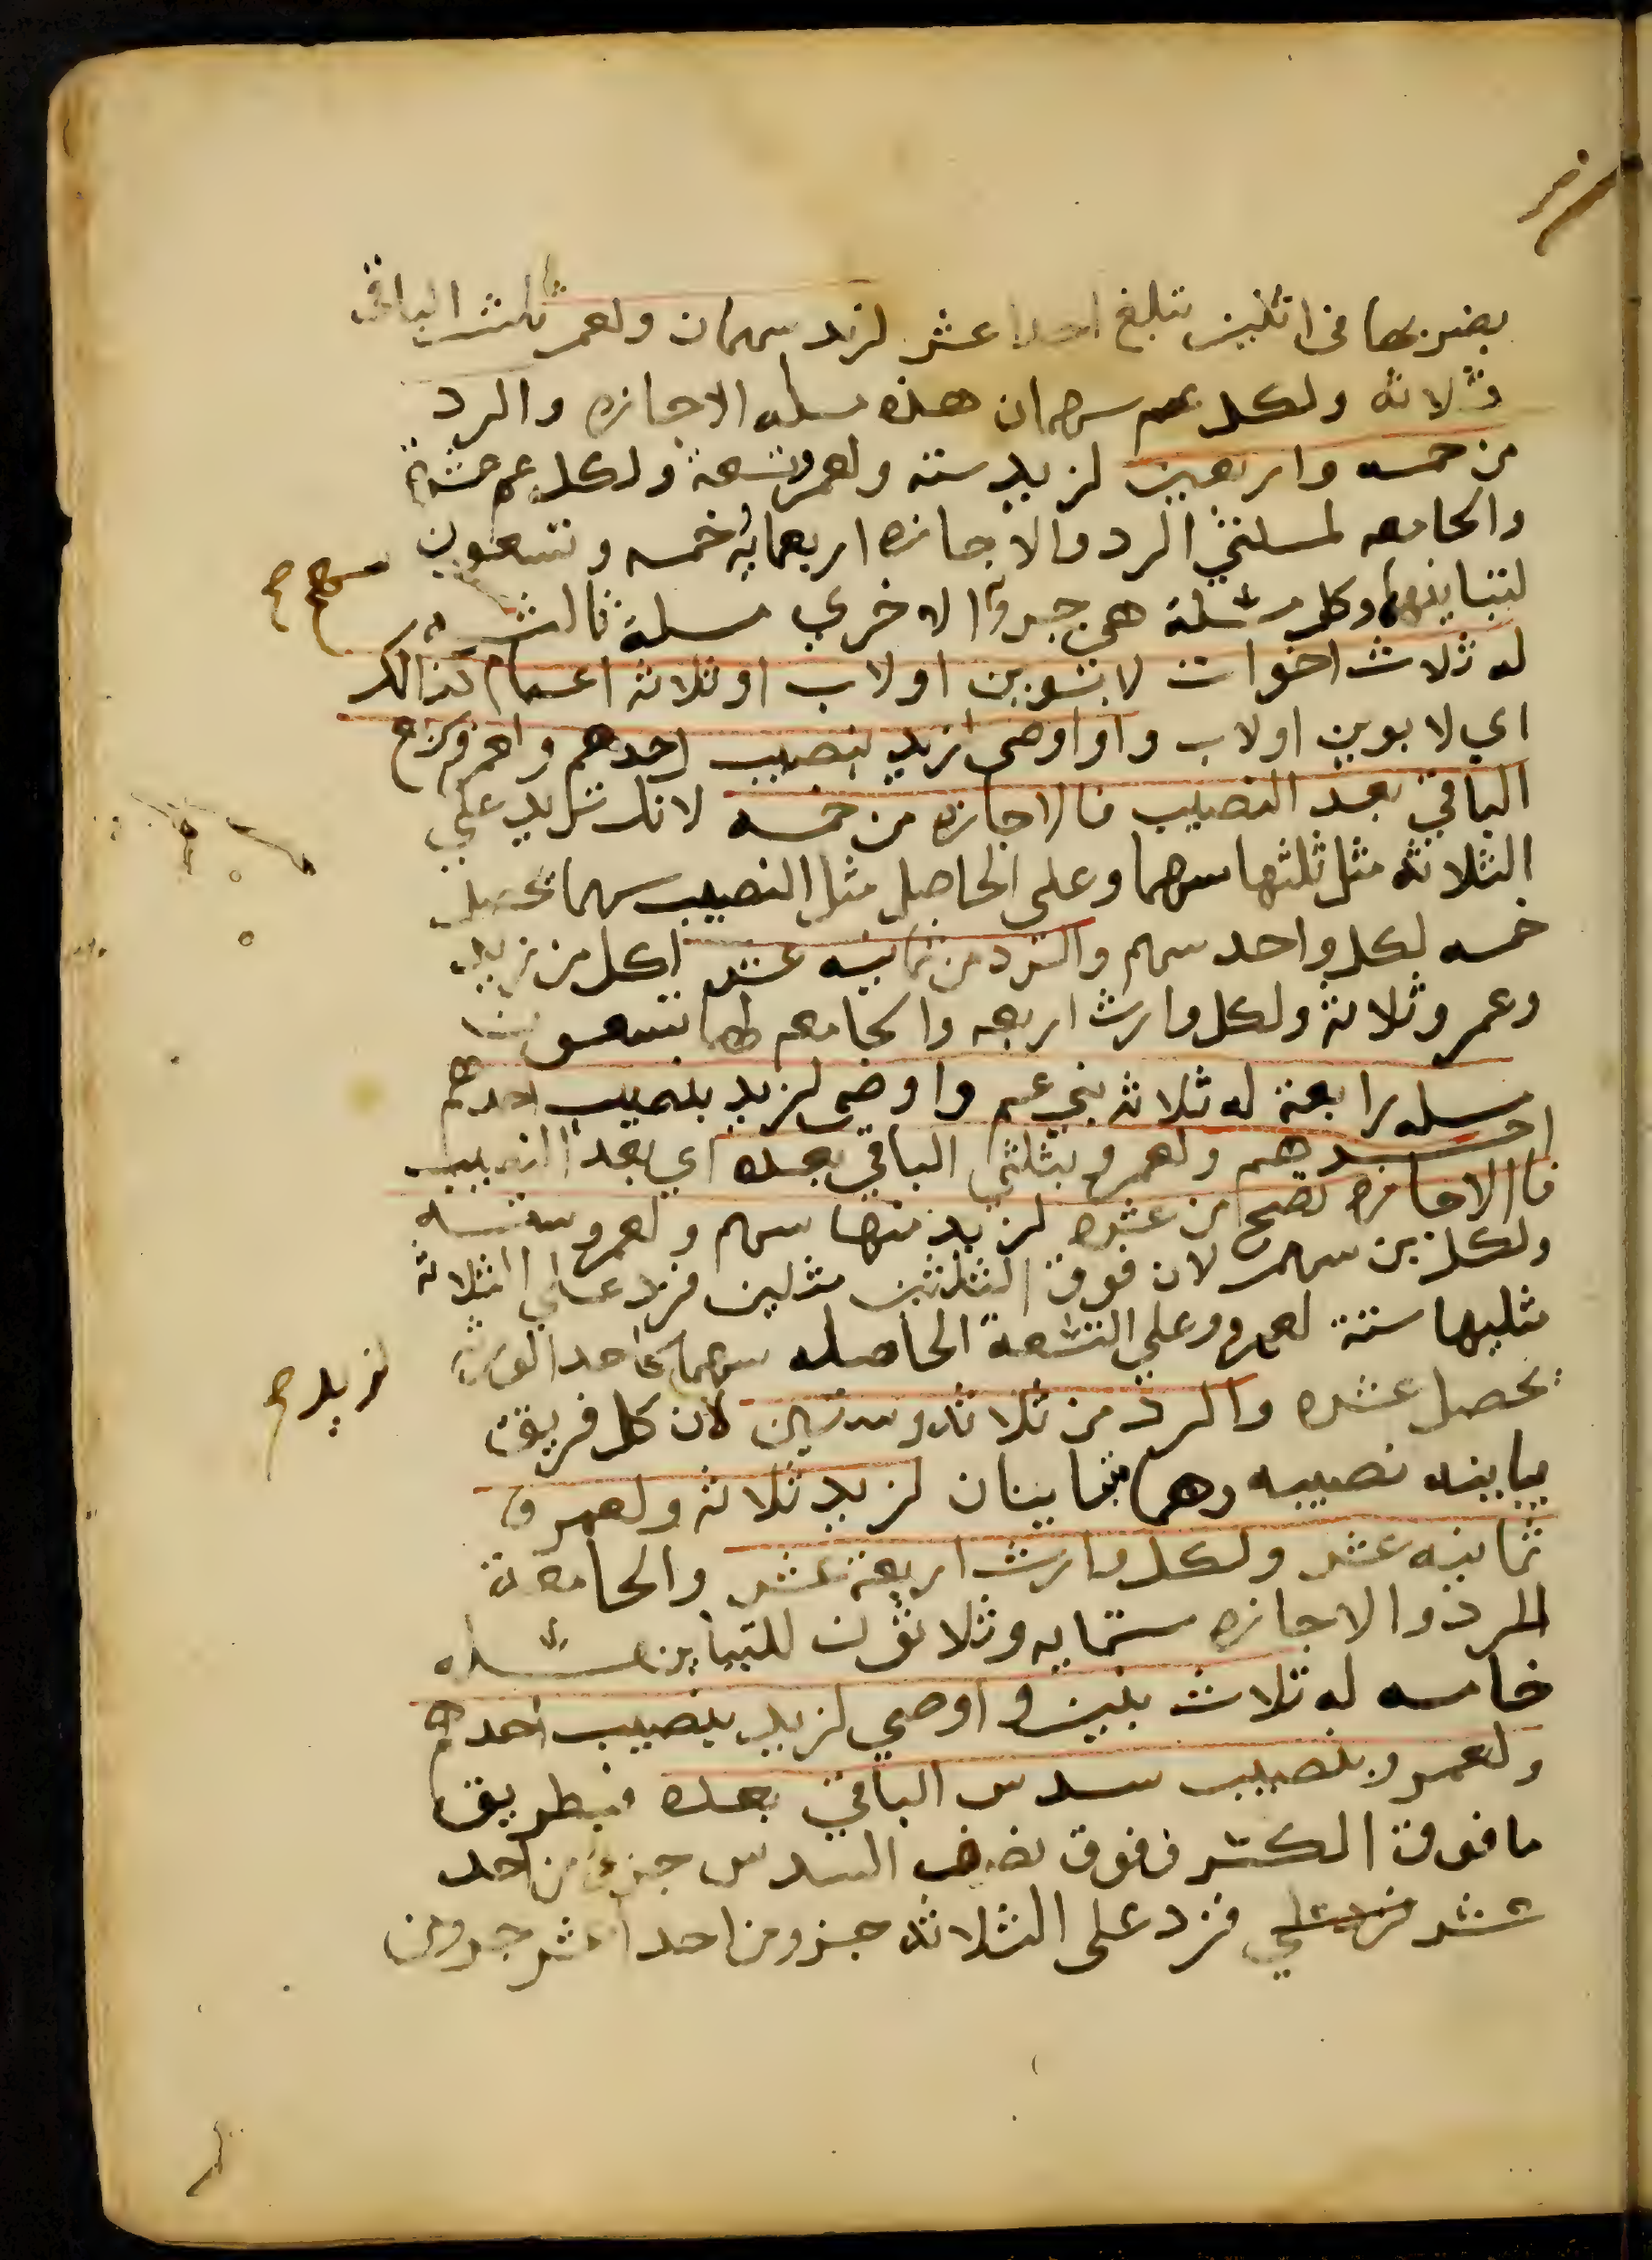 يضربها في اثنين تبلغ احدا عشر لزيد سهمان ولعمر ثلث الباقي
ثلاثه ولكل عم سهمان هذه مسله الاجازه والرد
من خمسه واربعين لزيد سته ولعمرو تسعة ولكل عم عشرة
والجامعه لمسلتي الرد والاجازه اربعمايه خمسه وتسعون
لتباينهما وكل مسئلة هي جزو الاخري مسلة ثالثه
له ثلاث اخوات لابوين او لاب او ثلاثه اعمام كذالك
اي لابوين او لاب واوصى لزيد بنصيب احدهم ولعمرو بربع
الباقي بعد النصيب فالاجازه من خمسه لانك تزيد علي
الثلاثه مثل ثلثها سهما وعلى الحاصل مثل النصيب سهما تحصل
خمسه لكل واحد سهم والرد من ثمانيه عشر لكل من زيد
وعمرو ثلاثة ولكل وارث اربعه والجامعه لهما تسعون
مسله رابعة له ثلاثه بني عم واوصى لزيد بنصيب احدهم
احدهم ولعمرو بثلثي الباقي بعده اي بعد النصيب
فاالاجازه تصح من عشره لزيد منها سهم ولعمرو سته
ولكل بن سهم لان فوق الثلثين مثلين فزد علي الثلاثه
مثليها ستة لعمرو وعلي التسعة الحاصله سهما كاحد الورثه
لزيد صح
تحصل عشره والرد من ثلاثه وستين لان كل فريق
يباينه نصيبه وهما متباينان لزيد ثلاثه ولعمرو
ثمانيه عشر ولكل وارث اربعة عشر والجامعة
الرد والاجازه ستمايه وثلاثون للتباين مسئله
خامسه له ثلاث بنين و اوصي لزيد بنصيب احدهم
ولعمرو بنصيب سدس الباقي بعده فبطريق
ما فوق الكسر ففوق نصف السدس جزو من احد
عشر فزد علي فزد على الثلاثه جزو من احد عشر جزو من